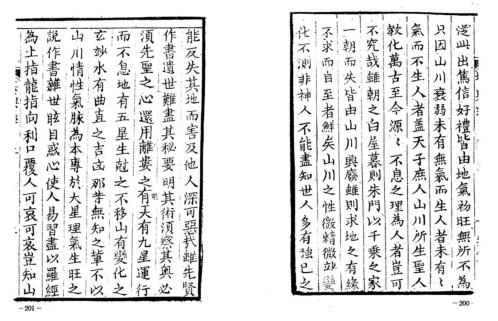 此出篤信好禮皆由地氣初旺無所不為
只因山川衰弱未有無氣而生人者未有
氣而不生人者蓋天子庶人山川所生聖人
教化萬古至今源〻不息之理為人者豈可
不究哉雖朝之白屋暮則朱門以千乘之家
一朝而失皆由山川興廢雖則求地之有緣
不求而自至者鮮矣山川之性微精微妙變
化不測非神人不能盡知世人多有強己之
-200-
能反失其地而害及他人深可惡哉雖先賢
作書遺世難盡其秘要明其術須察其奧必
須先聖之心還用離婁之有天有九星運行
而不息地有五星生尅之不移山有變化之
玄妙水有曲直之吉凶那無知之輩不以
山川情性氣脈為本專於大星理氣生旺之
說作書雖世眩目惑心使人易習盡以羅經
為止指龍指向利口覆人可哀可哀豈知山
-201-